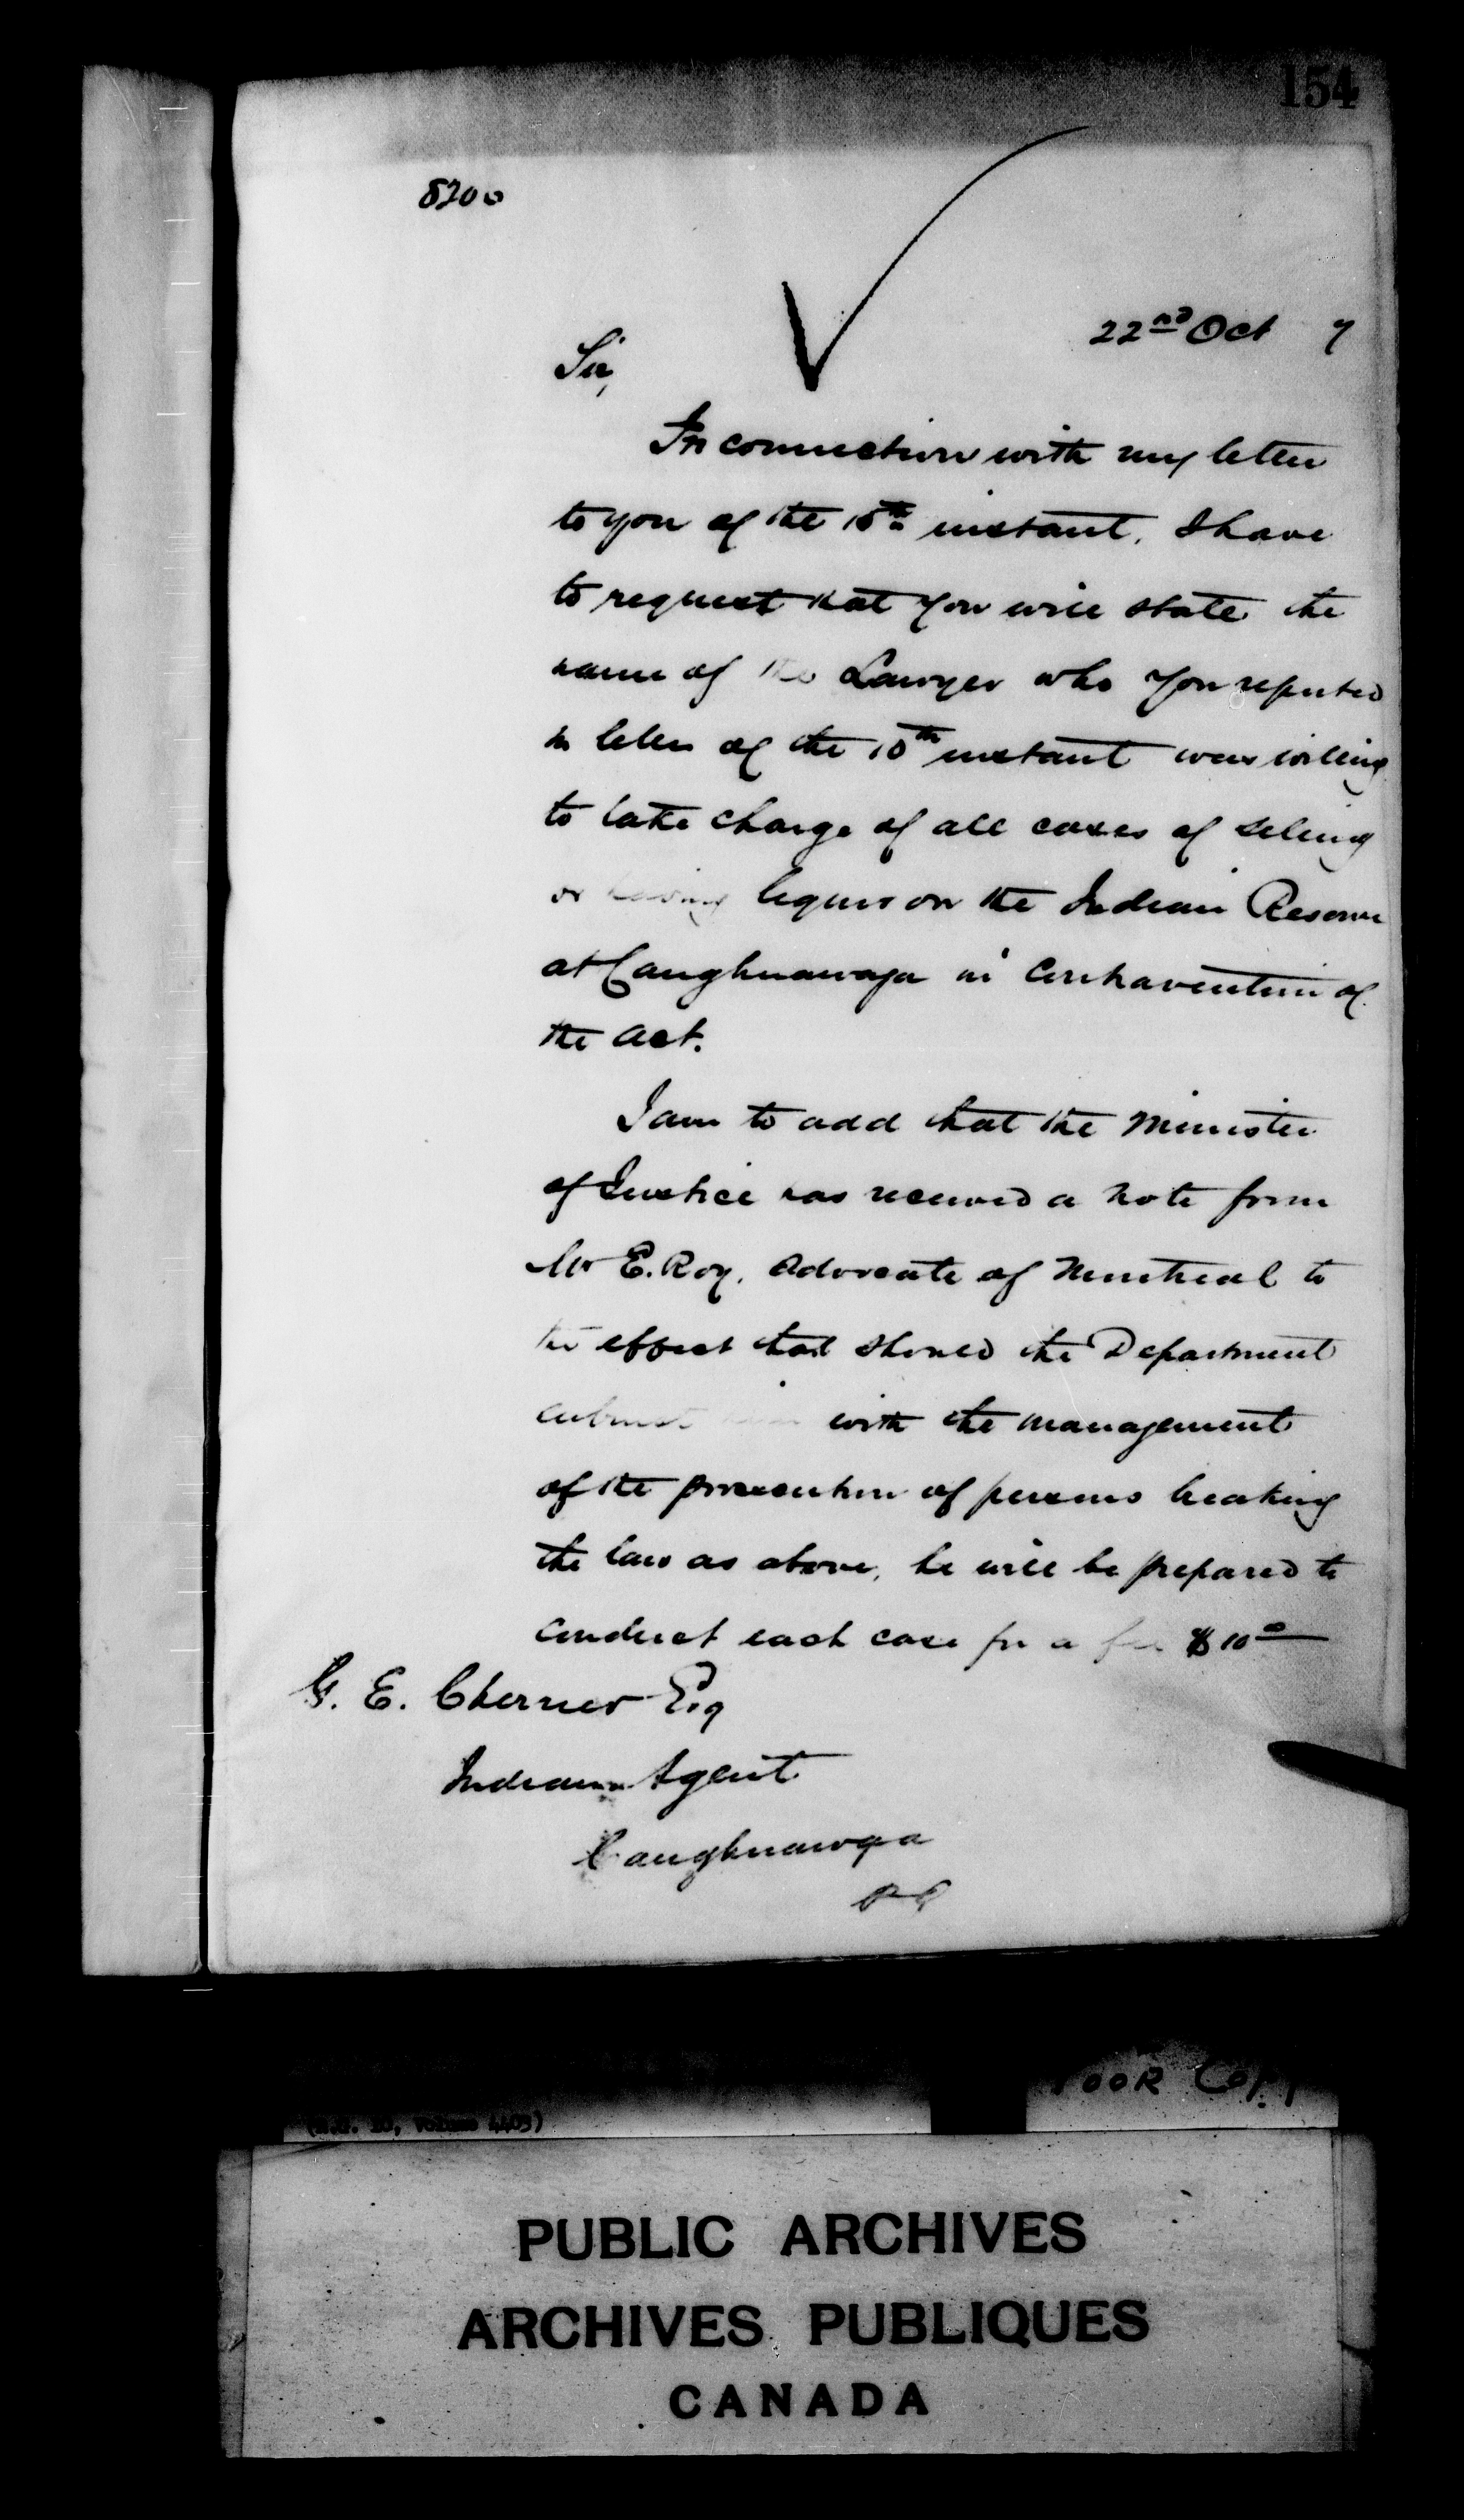 154
8200
22nd Oct 7
Sir,
In connection with my letter
to you of the 18th instant, I have
to request that you will state the
name of the Lawyer who you reported
in letter of the 10th instant was willing
to take charge of all cases of selling
or having liquor on the Indian Reserve
at Caughnawaga in contravention of
the Act.
I am to add that the Minister
of Justice has received a note from
Mr E. Roy, Advocate of Montreal to
the effect that should the Department
entrust him with the management
of the prosecution of persons breaking
the law as above, he will be prepared to
conduct each case for a fee $10.00
G. E. Cherrier Esq
Indian Agent
Caughnawaga
PQ
POOR COPY
(R.G. 10, Volume 4403)
PUBLIC ARCHIVES
ARCHIVES PUBLIQUES
CANADA